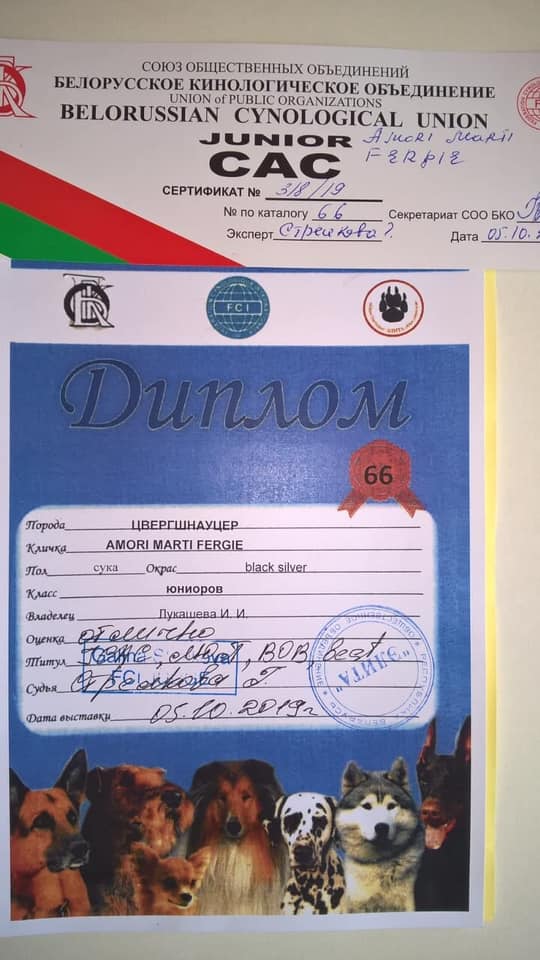 СОЮЗ ОБЩЕСТВЕННЫХ ОБЪЕДИНЕНИЙ
БЕЛОРУССКОЕ КИНОЛОГИЧЕСКОЕ ОБЪЕДИНЕНИЕ
UNION of PUBLIC ORGANIZATIONS
BELORUSSIAN CYNOLOGICAL UNION
JUNIOR Amori Marti
CAC FERGIE
СЕРТИФИКАТ № 318/19
№ по каталогу 66 Секретариат СОО БКО
Эксперт Стрелкова Г. Дата 05.10.
FCI
Диплом
66
Порода ЦВЕРГШНАУЦЕР
Кличка AMORI MARTI FERGIE
Пол сука Окрас black silver
Класс юниоров
Владелец Лукашева И. И.
Оценка отлично
Титул ЮСАС, ЛЮП, BOB, best
Судья Стрелкова Г
Дата выставки 05.10.2019г
"ЭЛИТА"